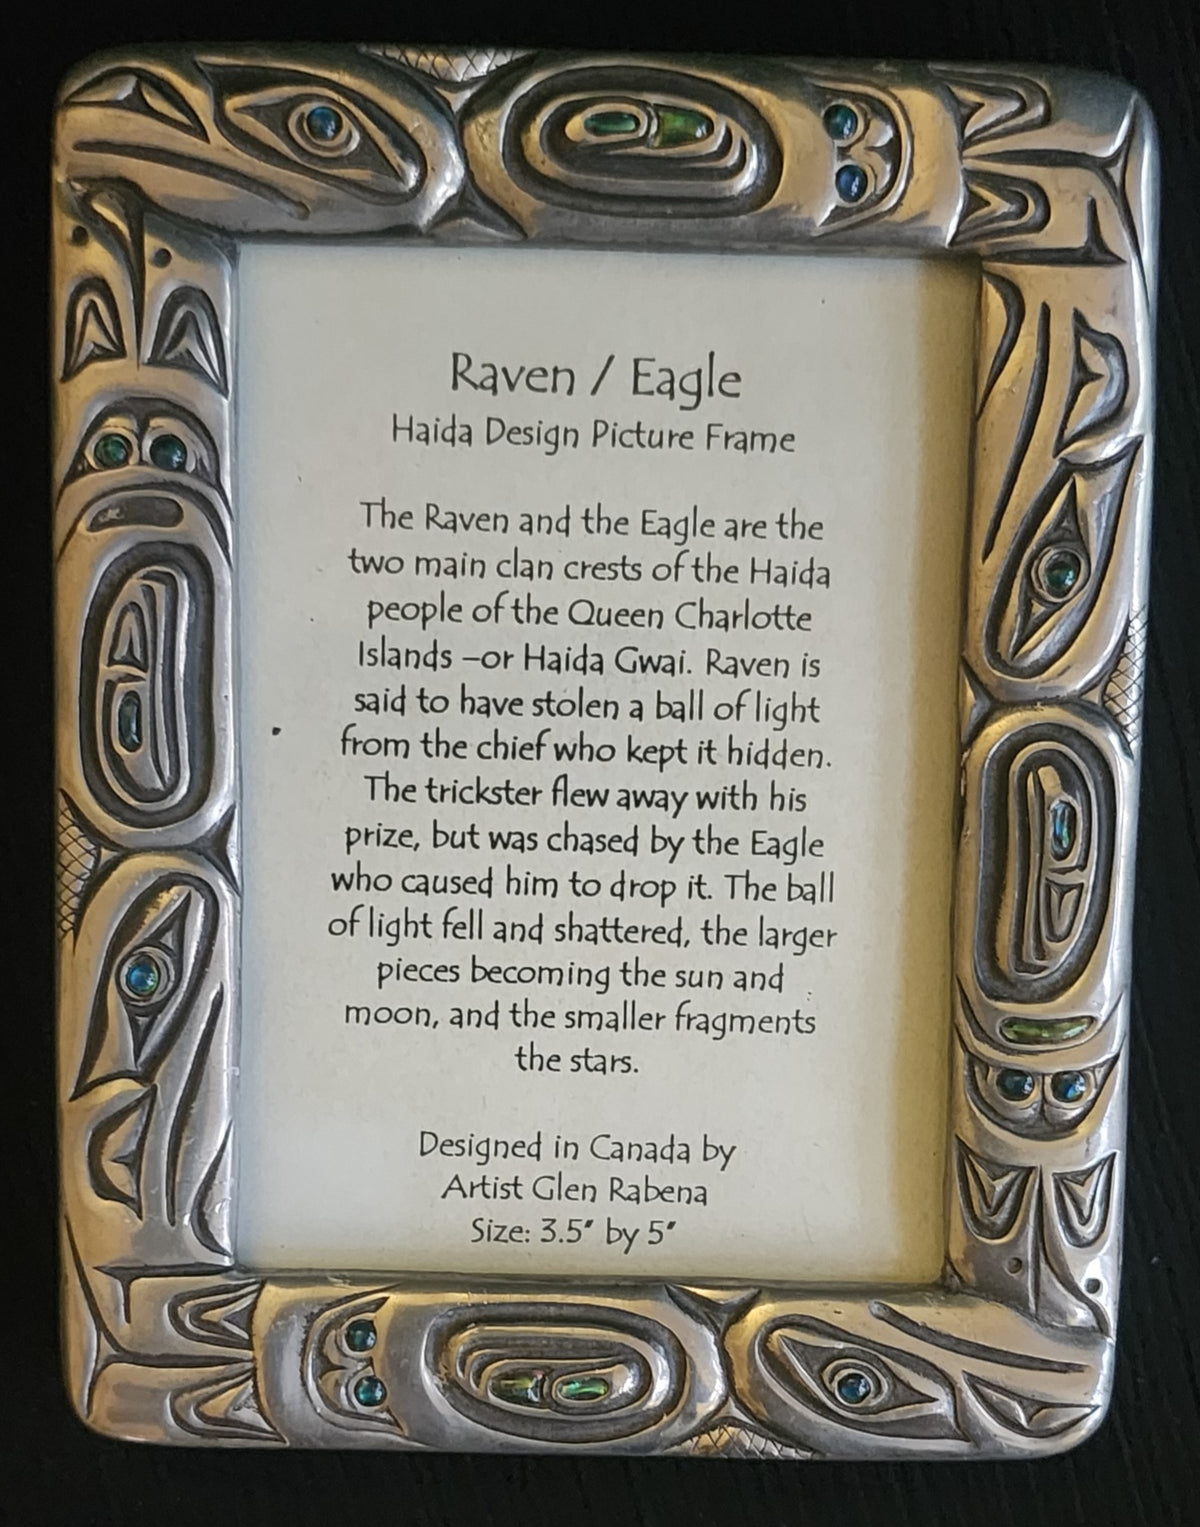 Raven / Eagle
Haida Design Picture Frame
The Raven and the Eagle are the
two main clan crests of the Haida
people of the Queen Charlotte
Islands –or Haida Gwai. Raven is
said to have stolen a ball of light
from the chief who kept it hidden.
The trickster flew away with his
prize, but was chased by the Eagle
who caused him to drop it. The ball
of light fell and shattered, the larger
pieces becoming the sun and
moon, and the smaller fragments
the stars.
Designed in Canada by
Artist Glen Rabena
Size: 3.5" by 5"